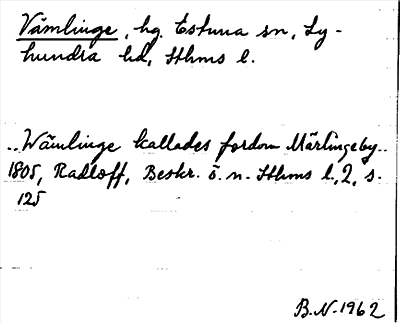 Vämlinge, hg. Estuna sn, Ly-
hundra hd, Sthms l.
.. Wämlinge kallades fordom Märlingeby..
1805, Radloff, Beskr. ö. n. Sthms l., 2, s.
125
B.N. 1962